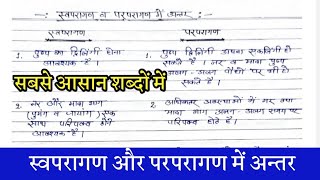 स्वपरागण व परपरागण में अन्तर :
स्वपरागण
परपरागण
1. पुष्प का द्विलिंगी होना आवश्यक है ।
1. पुष्प द्विलिंगी अथवा एकलिंगी हो सकते हैं । नर व मादा पुष्प अलग-अलग पौधों पर हो सकते हैं ।
सबसे आसान शब्दों में
2. नर और मादा भाग (पुमंग व जायांग) एक साथ परिपक्व होने आवश्यक है ।
2. अधिकतर अवस्थाओं में नर तथा मादा भाग अलग-अलग समय पर परिपक्व होते हैं ।
स्वपरागण और परपरागण में अन्तर